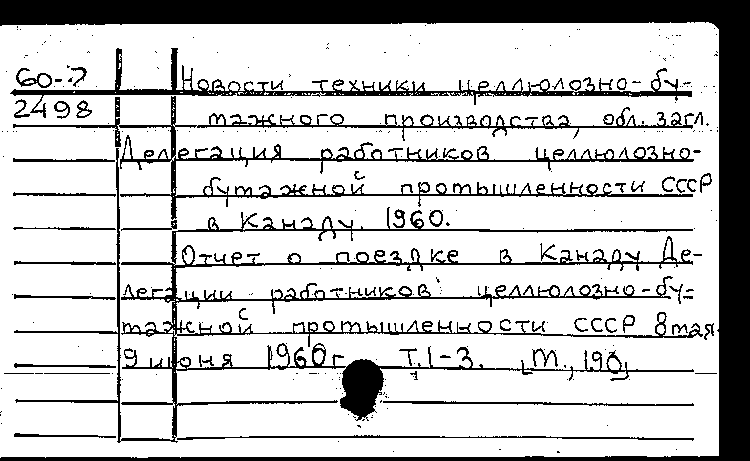 60-7 Новости техники целлюлозно-бу-
2498 мажного производства, обл. загл.
Делегация работников целлюлозно-
бумажной промышленности СССР
в Канаду. 1960.
Отчет о поездке в Канаду Де-
легации работников целлюлозно-бу-
мажной промышленности СССР 8 мая-
9 июня 1960г. Т.1-3. [М., 190]